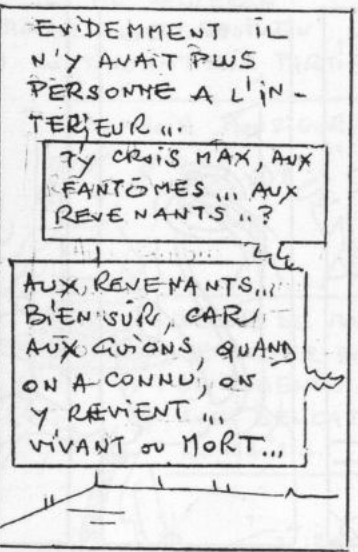 EVIDEMMENT iL
N'Y AVAIT PLUS
PERSONNE A L'iN-
TERiEUR...
TY CROiS MAX, AUX
FANTÔMES... AUX
REVENANTS..?
AUX, REVENANTS...
BiEN SÛR, CAR
AUX GUiONS, QUAND
ON A CONNU, ON
Y REViENT...
ViVANT OU MORT...